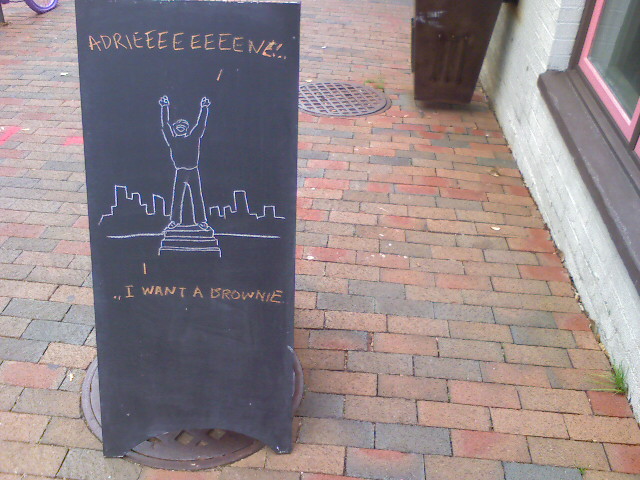 ADRIEEEEEEEENE!..
..I WANT A BROWNIE